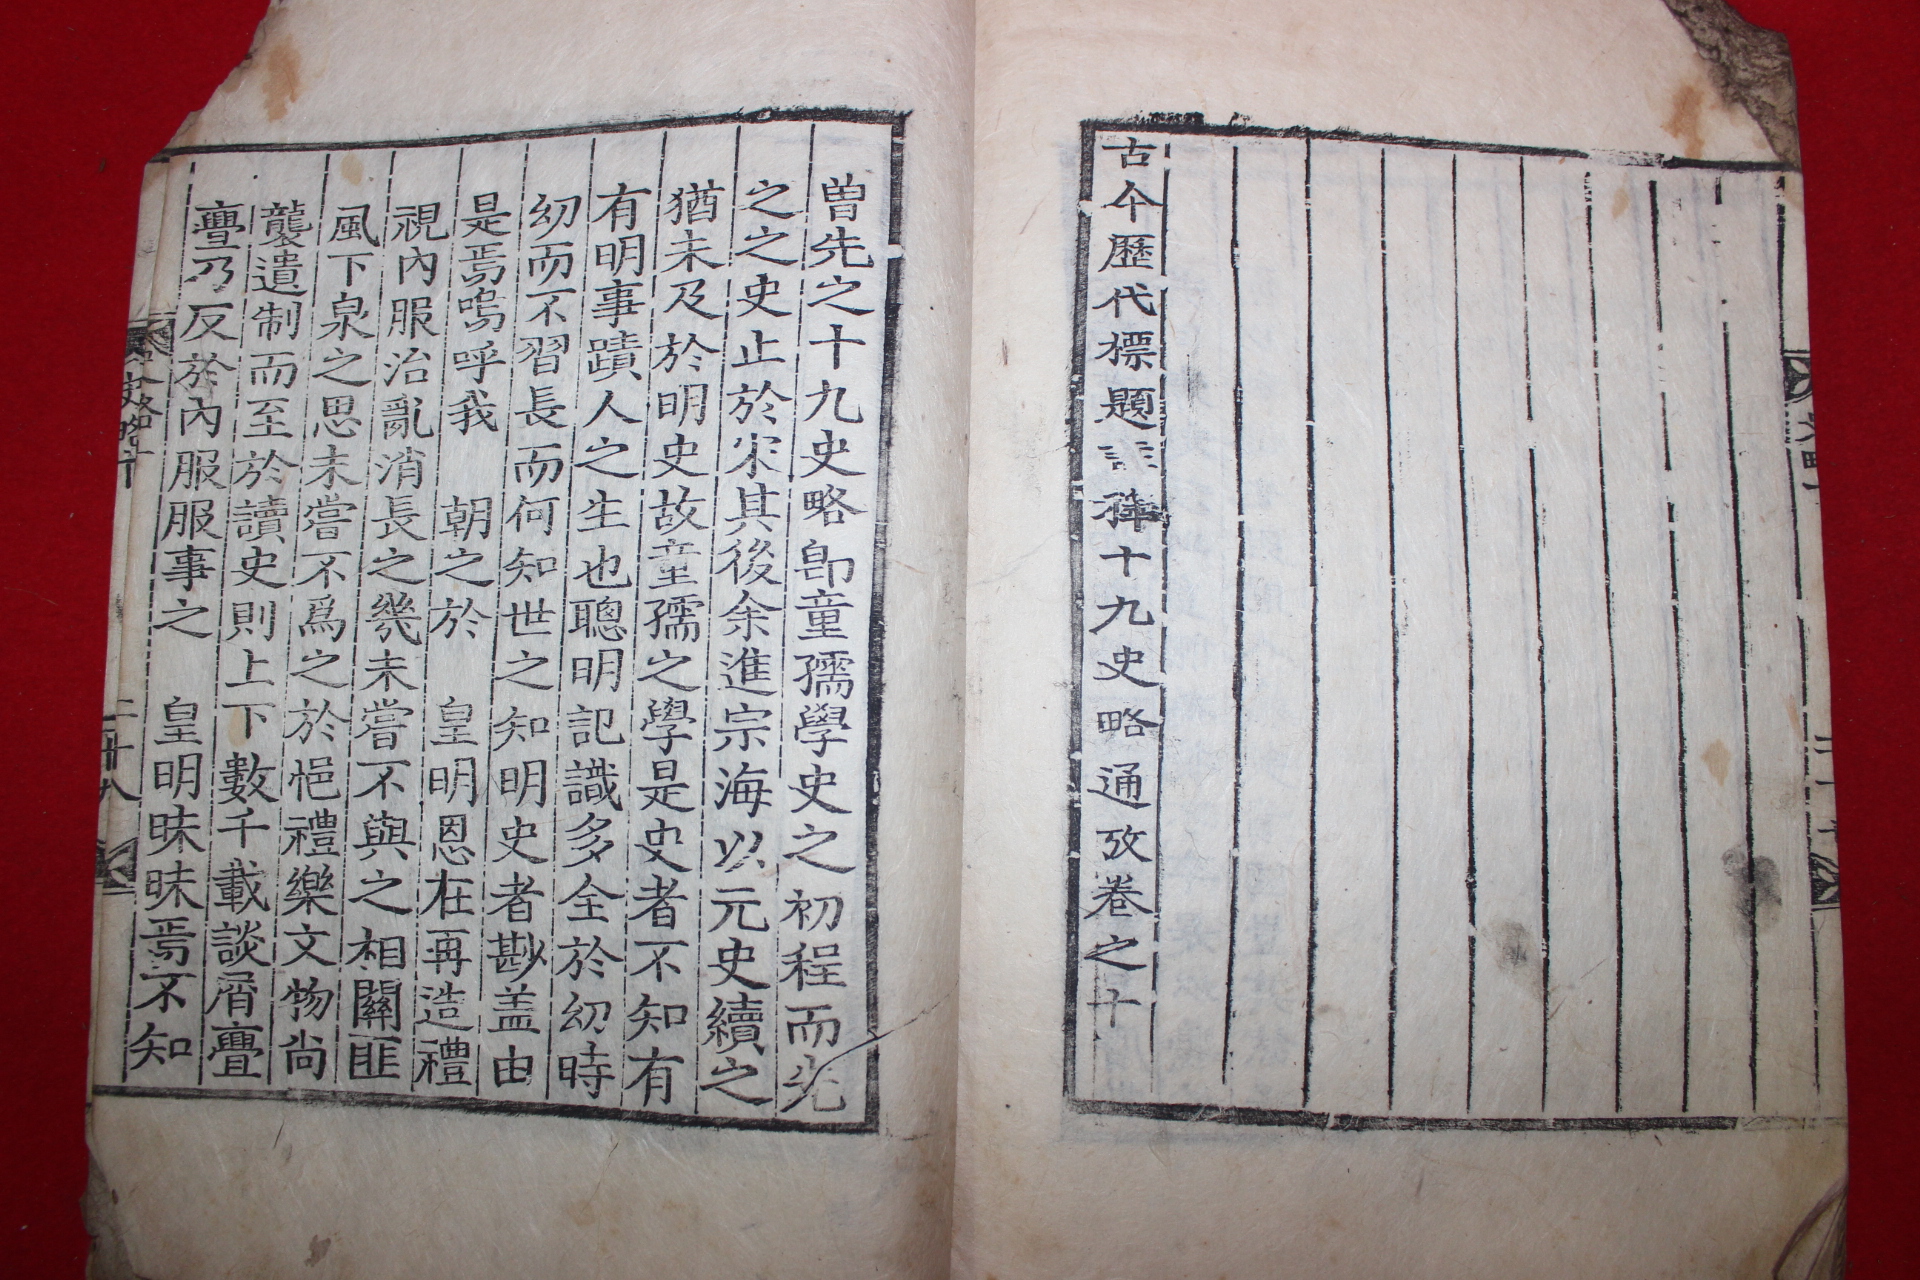 古今歷代標題註釋十九史略通攷卷之十
曽先之十九史略卽童孺學史之初程而先
之之史止於宋其後余進宗海以元史續之
猶未及於明史故童孺之學是史者不知有
有明事蹟人之生也聰明記識多全於幼時
幼而不習長而何知世之知明史者尠盖由
是焉嗚呼我 朝之於 皇明恩在再造禮
視內服治亂消長之幾未嘗不與之相關匪
風下泉之思未嘗不爲之於悒禮樂文物尚
襲遺制而至於讀史則上下數千載談屑亹
亹乃反於內服服事之 皇明昧昧焉不知
史略十
二十八